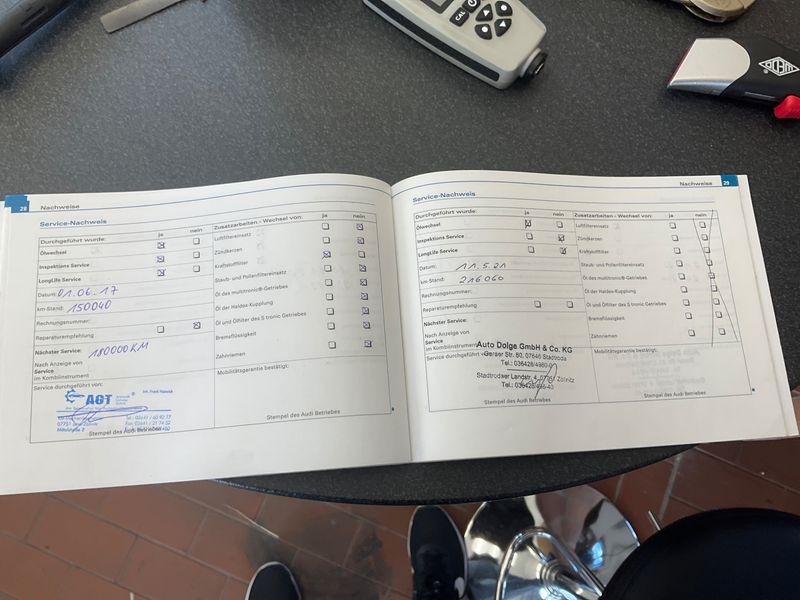 CAL
WEDO
28 Nachweise
Service-Nachweis
Durchgeführt wurde: ja nein
Ölwechsel
Inspektions Service
LongLife Service
Datum: 01.06.17
km-Stand: 150040
Rechnungsnummer:
Reparaturempfehlung
Nächster Service: 180000 KM
Nach Anzeige von
Service
im Kombiinstrument
Service durchgeführt von:
AGT
07751
Stempel des Audi Betriebes
Zusatzarbeiten - Wechsel von: ja nein
Luftfiltereinsatz
Zündkerzen
Kraftstofffilter
Staub- und Pollenfiltereinsatz
Öl des multitronic®-Getriebes
Öl der Haldex-Kupplung
Öl und Ölfilter des S tronic Getriebes
Bremsflüssigkeit
Zahnriemen
Mobilitätsgarantie bestätigt:
Stempel des Audi Betriebes
Nachweise 29
Service-Nachweis
Durchgeführt wurde: ja nein
Ölwechsel
Inspektions Service
LongLife Service
Datum: 11.5.21
km-Stand: 216060
Rechnungsnummer:
Reparaturempfehlung
Nächster Service:
Nach Anzeige von
Service
im Kombiinstrument
Service durchgeführt von:
Auto Dolge GmbH & Co. KG
Geraer Str. 80, 07646 Stadtroda
Tel.: 036428/4980-0
Stadtrodaer Landstr. 4, 07751 Zöllnitz
Stempel des Audi Betriebes
Zusatzarbeiten - Wechsel von: ja nein
Luftfiltereinsatz
Zündkerzen
Kraftstofffilter
Staub- und Pollenfiltereinsatz
Öl des multitronic®-Getriebes
Öl der Haldex-Kupplung
Öl und Ölfilter des S tronic Getriebes
Bremsflüssigkeit
Zahnriemen
Mobilitätsgarantie bestätigt:
Stempel des Audi Betriebes